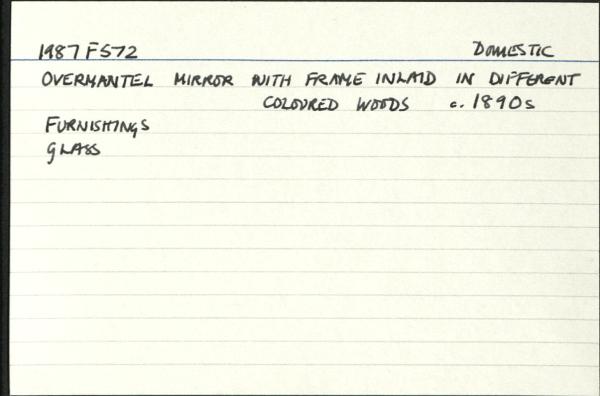 1987 F572 DOMESTIC
OVERMANTEL MIRROR WITH FRAME INLAID IN DIFFERENT
COLOURED WOODS c. 1890s
FURNISHINGS
GLASS